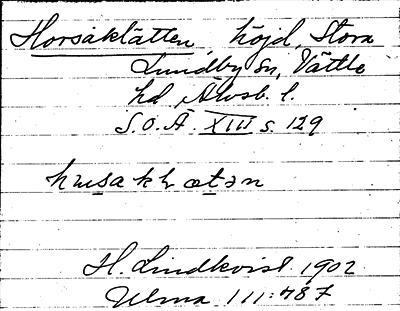 Horsaklätten, höjd, Stora
Lundby sn, Vättle
hd, Älvsb. l.
S.O.Ä. XIII s. 129
H. Lindkvist 1902
Ulma 111:787